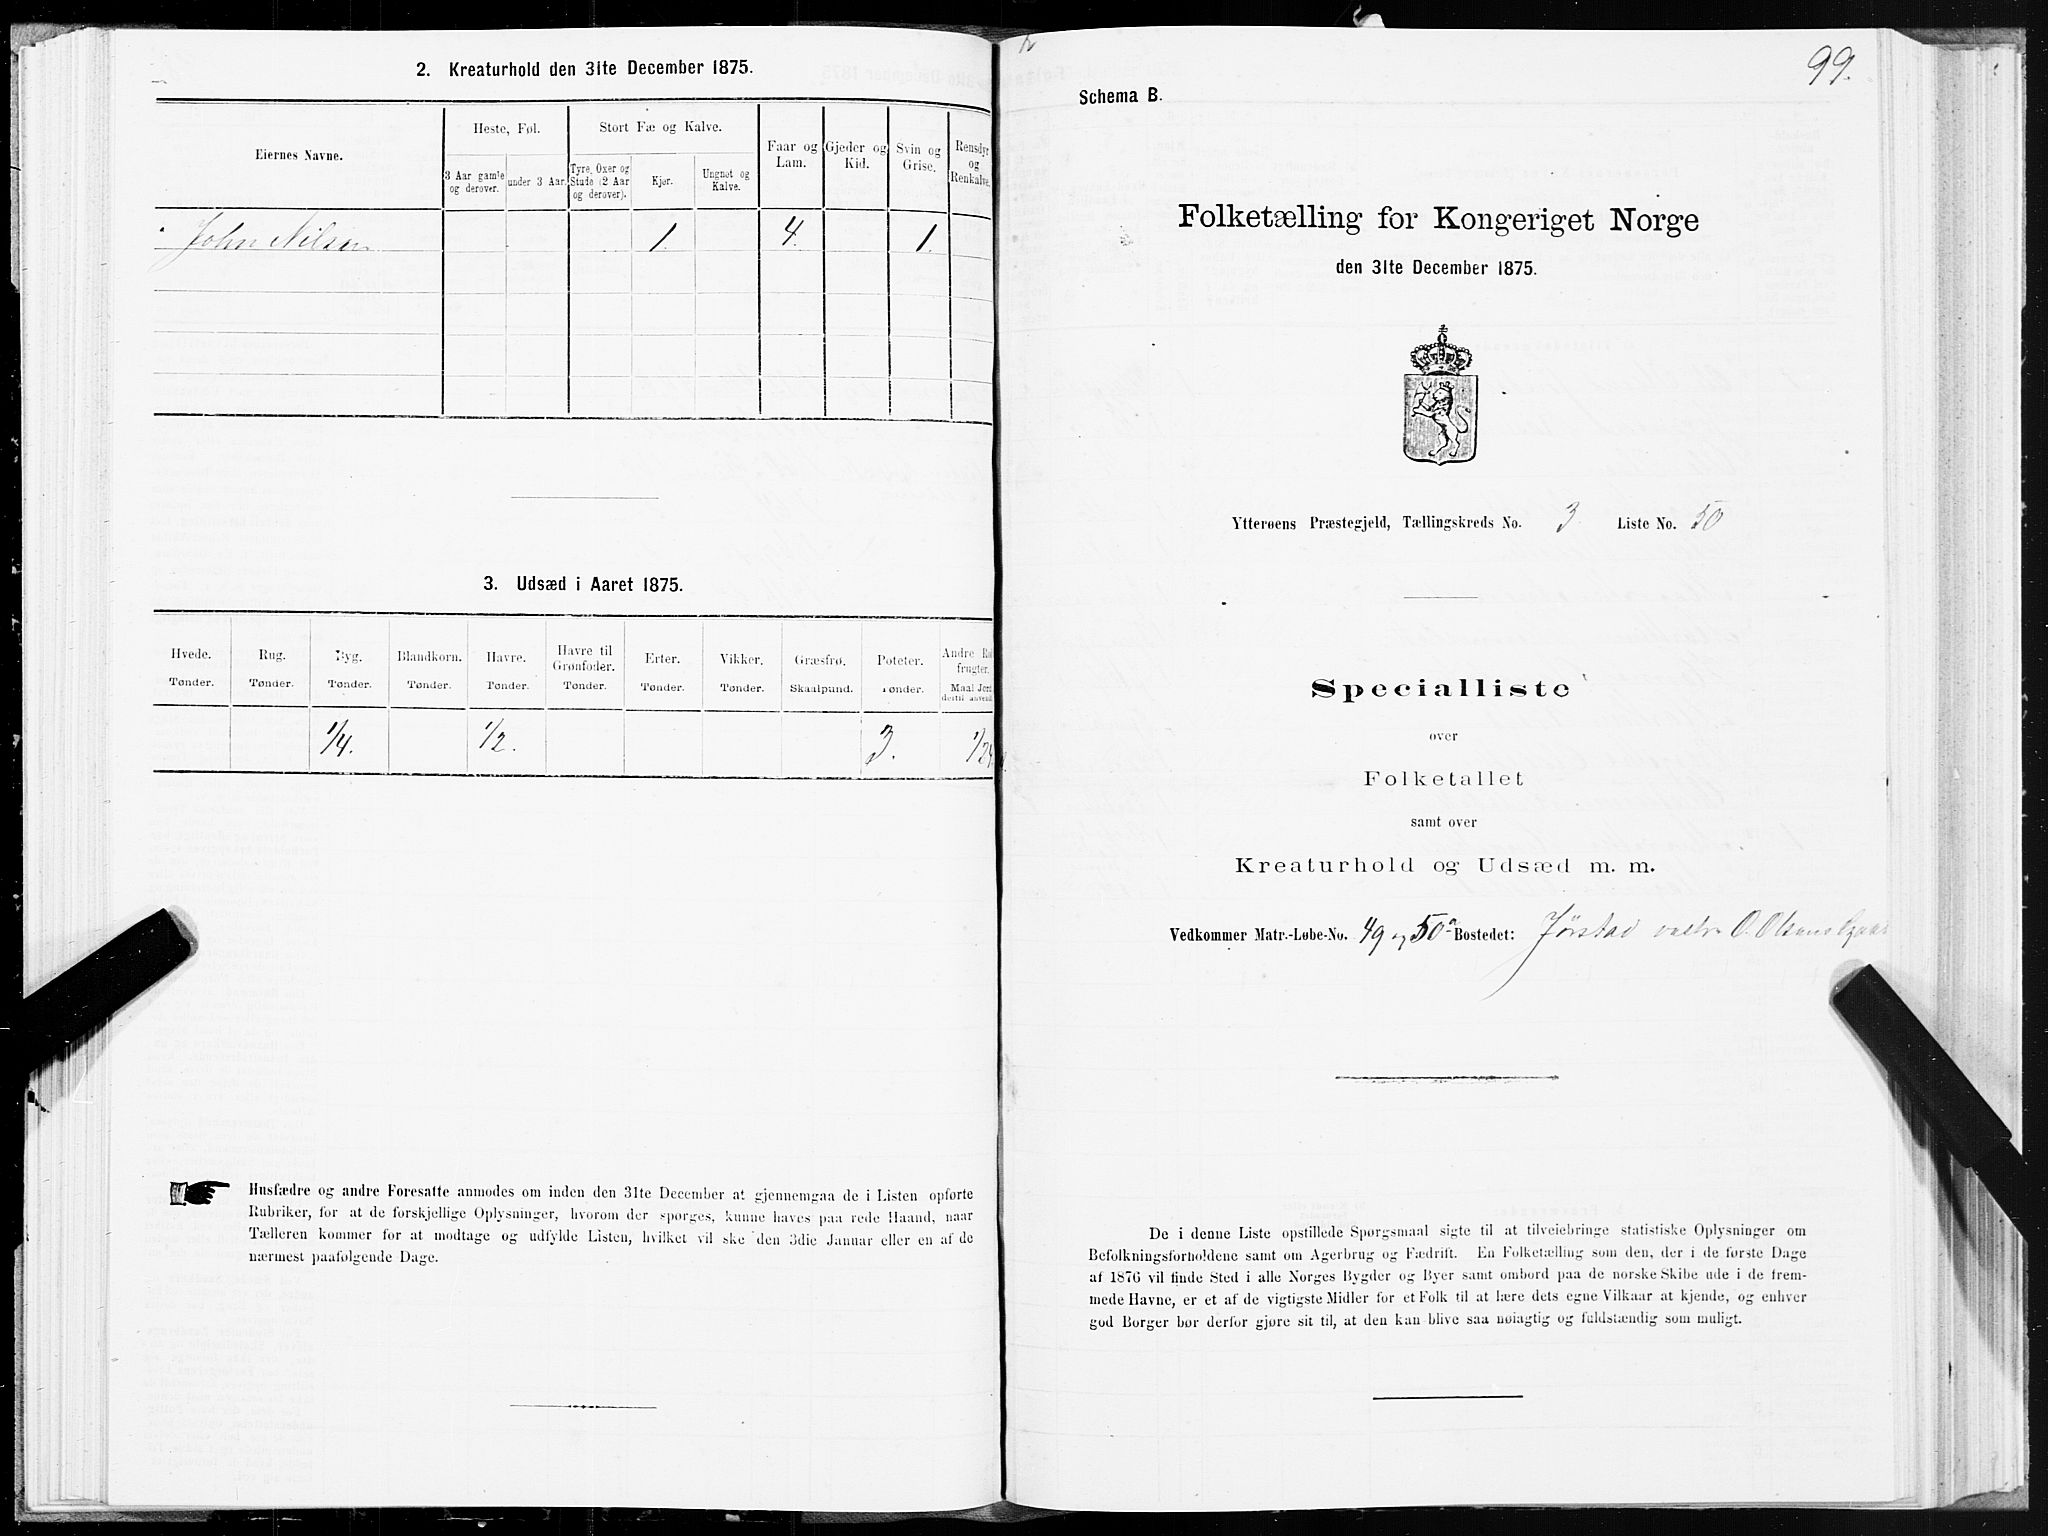 2. Kreaturhold den 31te December 1875.
Eiernes Navne.
Heste, Føl.
Stort Fæ og Kalve.
Faar og Lam.
Gjeder og Kid.
Svin og Grise.
Rensdyr og Renkalve.
3 Aar gamle og derover.
under 3 Aar.
Tyre, Oxer og Stude (2 Aar og derover).
Kjør.
Ungnøt og Kalve.
John Nilsen 1. 4. 1.
3. Udsæd i Aaret 1875.
Hvede. Rug. Byg. Blandkorn. Havre. Havre til Grønfoder. Erter. Vikker. Græsfrø. Poteter. Andre Rodfrugter.
Tønder. Tønder. Tønder. Tønder. Tønder. Tønder. Tønder. Tønder. Skaalpund. Tønder. Maal Jord dertil anvendt
1/4. 1/2. 3. 1/24
Husfædre og andre Foresatte anmodes om inden den 31te December at gjennemgaa de i Listen opførte
Rubriker, for at de forskjellige Oplysninger, hvorom der spørges, kunne haves paa rede Haand, naar
Tælleren kommer for at modtage og udfylde Listen, hvilket vil ske den 3die Januar eller en af de
nærmest paafølgende Dage.
99.
Schema B.
Folketælling for Kongeriget Norge
den 31te December 1875.
Ytterøens Præstegjeld, Tællingskreds No. 3 Liste No. 50
Specialliste
over
Folketallet
samt over
Kreaturhold og Udsæd m. m.
Vedkommer Matr.-Løbe-No. 49 og 50a Bostedet: Jørstad vestre O. Olsens
De i denne Liste opstillede Spørgsmaal sigte til at tilveiebringe statistiske Oplysninger om
Befolkningsforholdene samt om Agerbrug og Fædrift. En Folketælling som den, der i de første Dage
af 1876 vil finde Sted i alle Norges Bygder og Byer samt ombord paa de norske Skibe ude i de frem-
mede Havne, er et af de vigtigste Midler for et Folk til at lære dets egne Vilkaar at kjende, og enhver
god Borger bør derfor gjøre sit til, at den kan blive saa nøiagtig og fuldstændig som muligt.